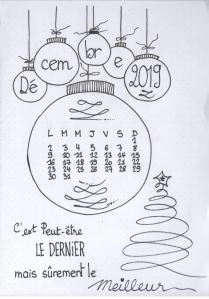 Décembre 2019
L M M J V S D
1
2 3 4 5 6 7 8
9 10 11 12 13 14 15
16 17 18 19 20 21 22
23 24 25 26 27 28 29
30 31
C'est Peut-être
LE DERNIER
mais sûrement le
Meilleur